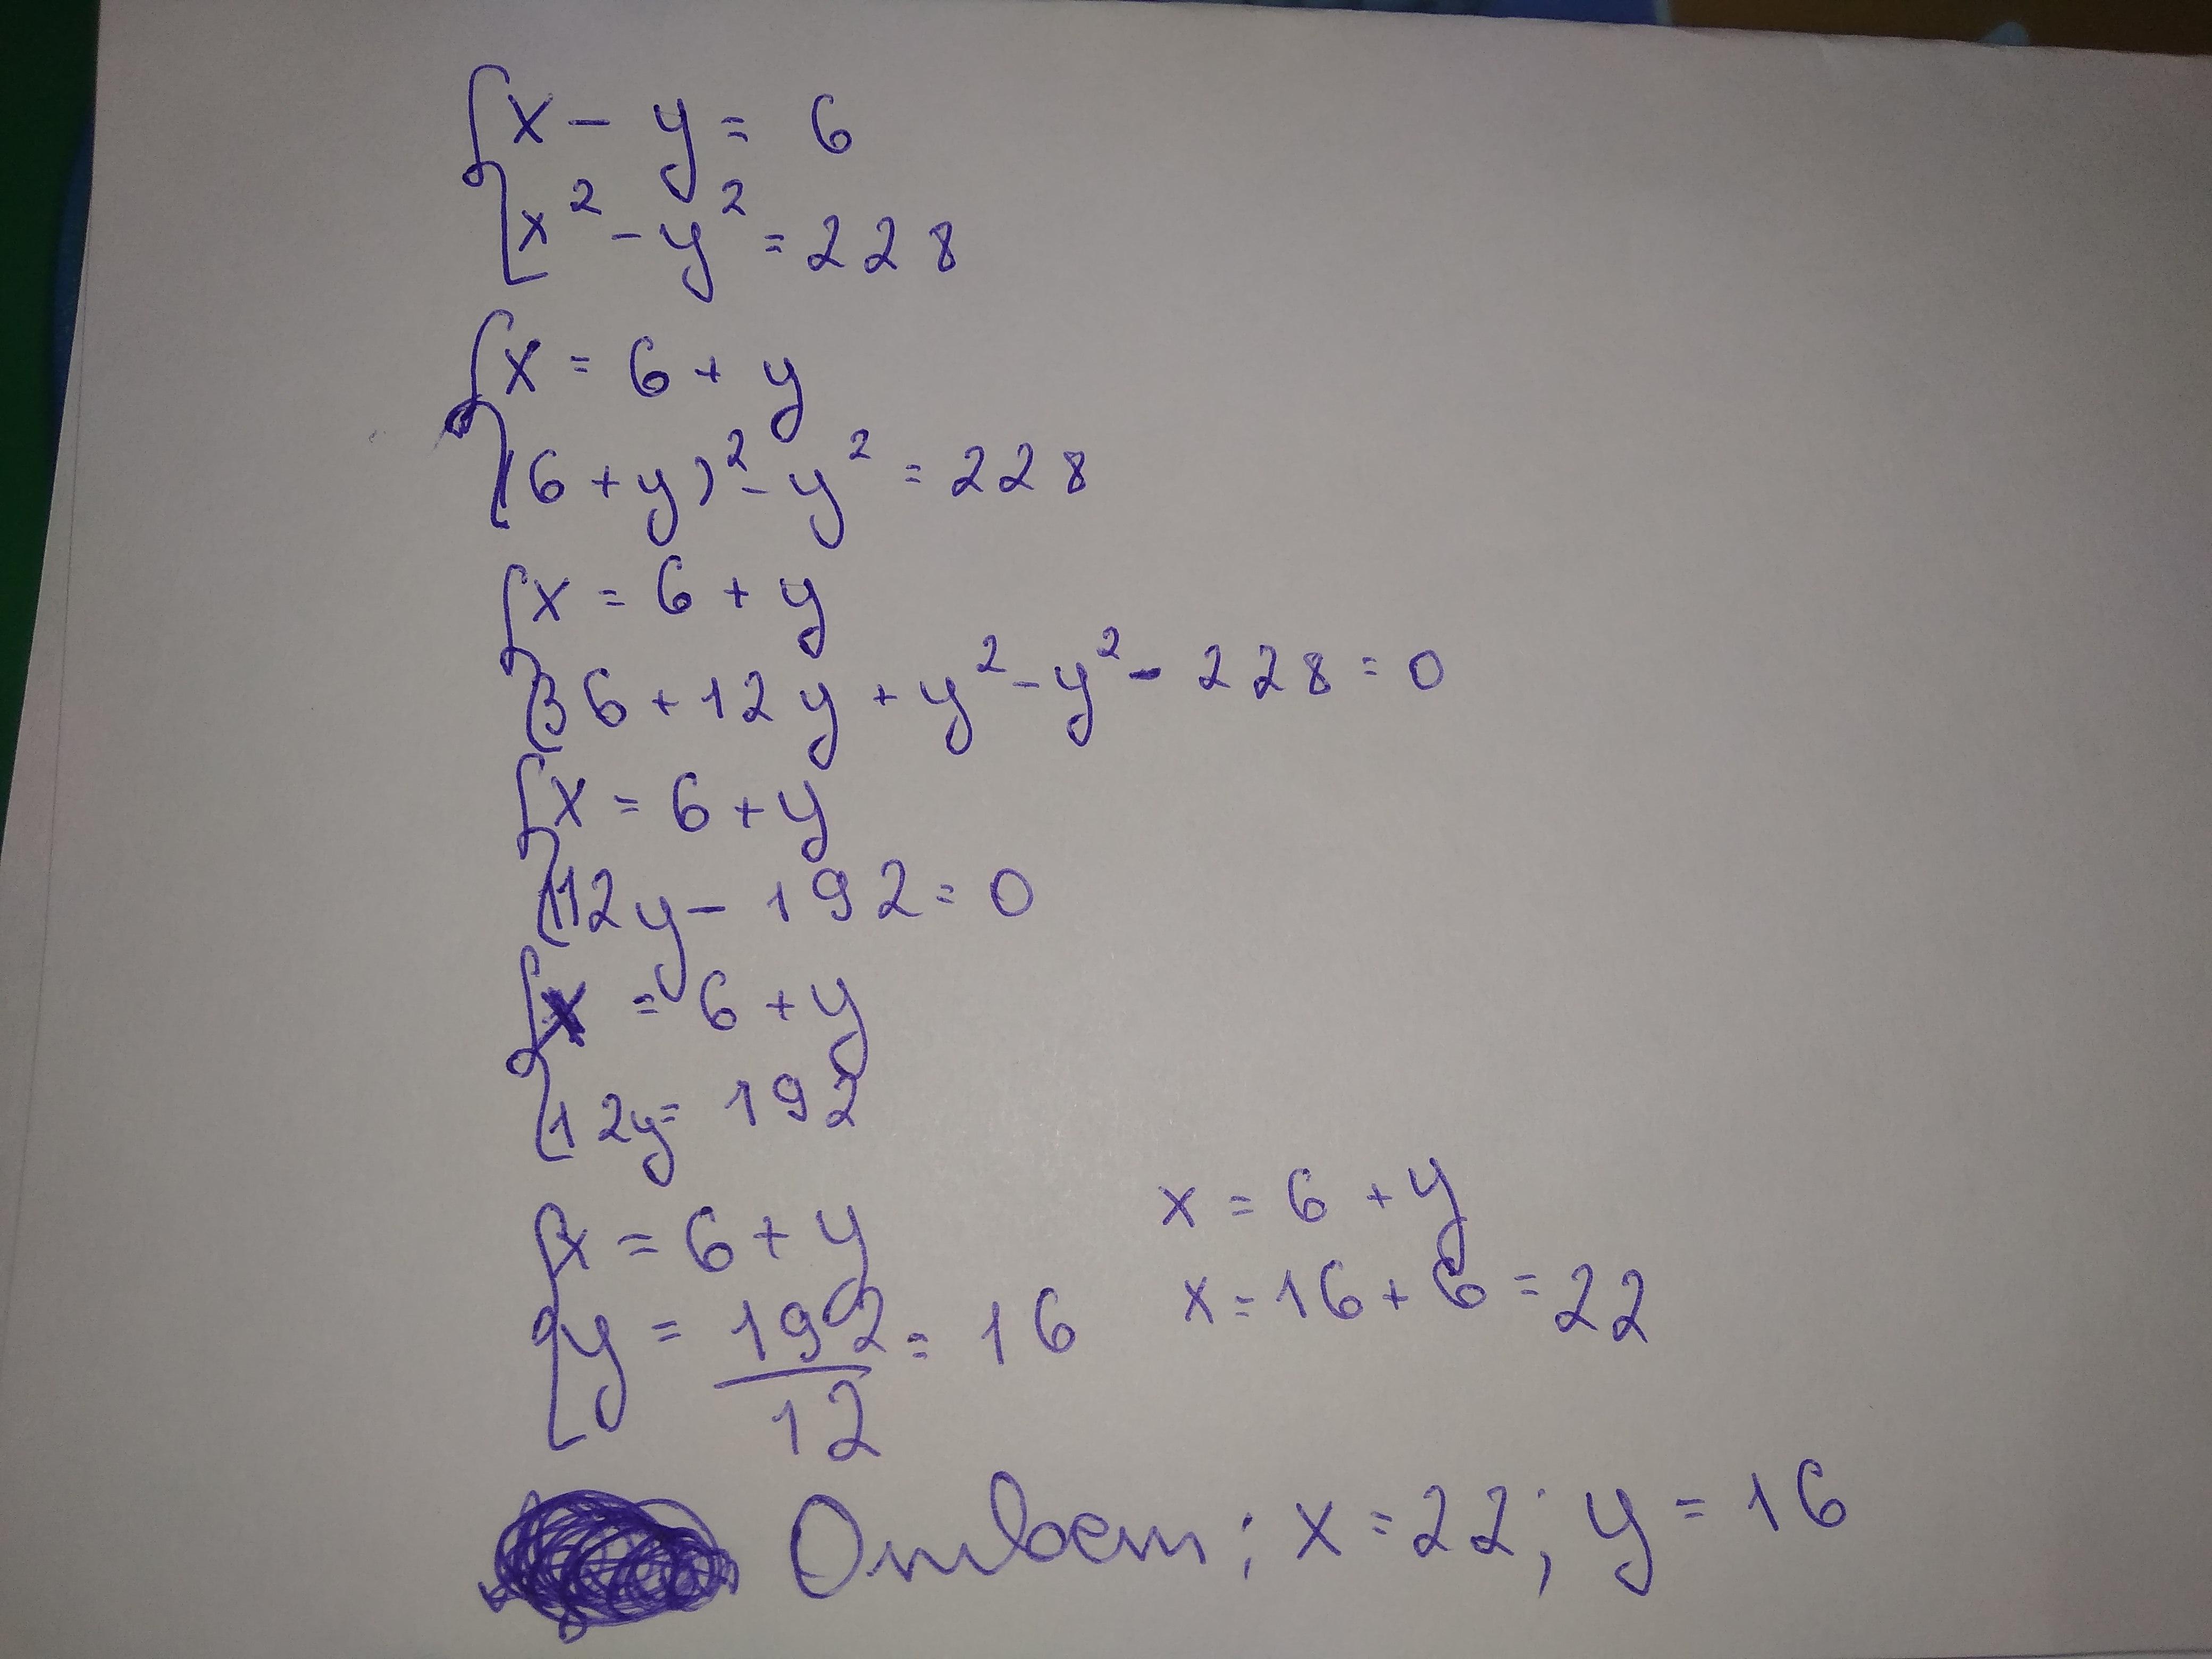 x - y = 6
x² - y² = 228
x = 6 + y
(6 + y)² - y² = 228
x = 6 + y
36 + 12y + y² - y² - 228 = 0
x = 6 + y
12y - 192 = 0
x = 6 + y
12y = 192
x = 6 + y
y = 192/12 = 16
x = 6 + y
x = 16 + 6 = 22
Ответ: x = 22; y = 16